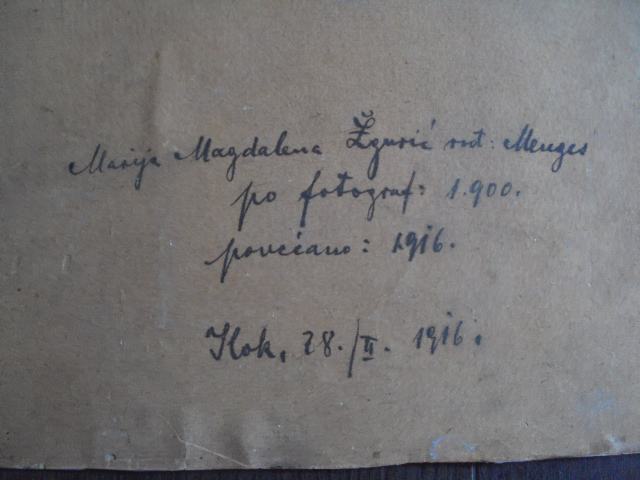 Marija Magdalena Žgurić rođ: Menges
po fotograf: 1.900.
povećano: 1916.
Ilok, 28./II. 1916.